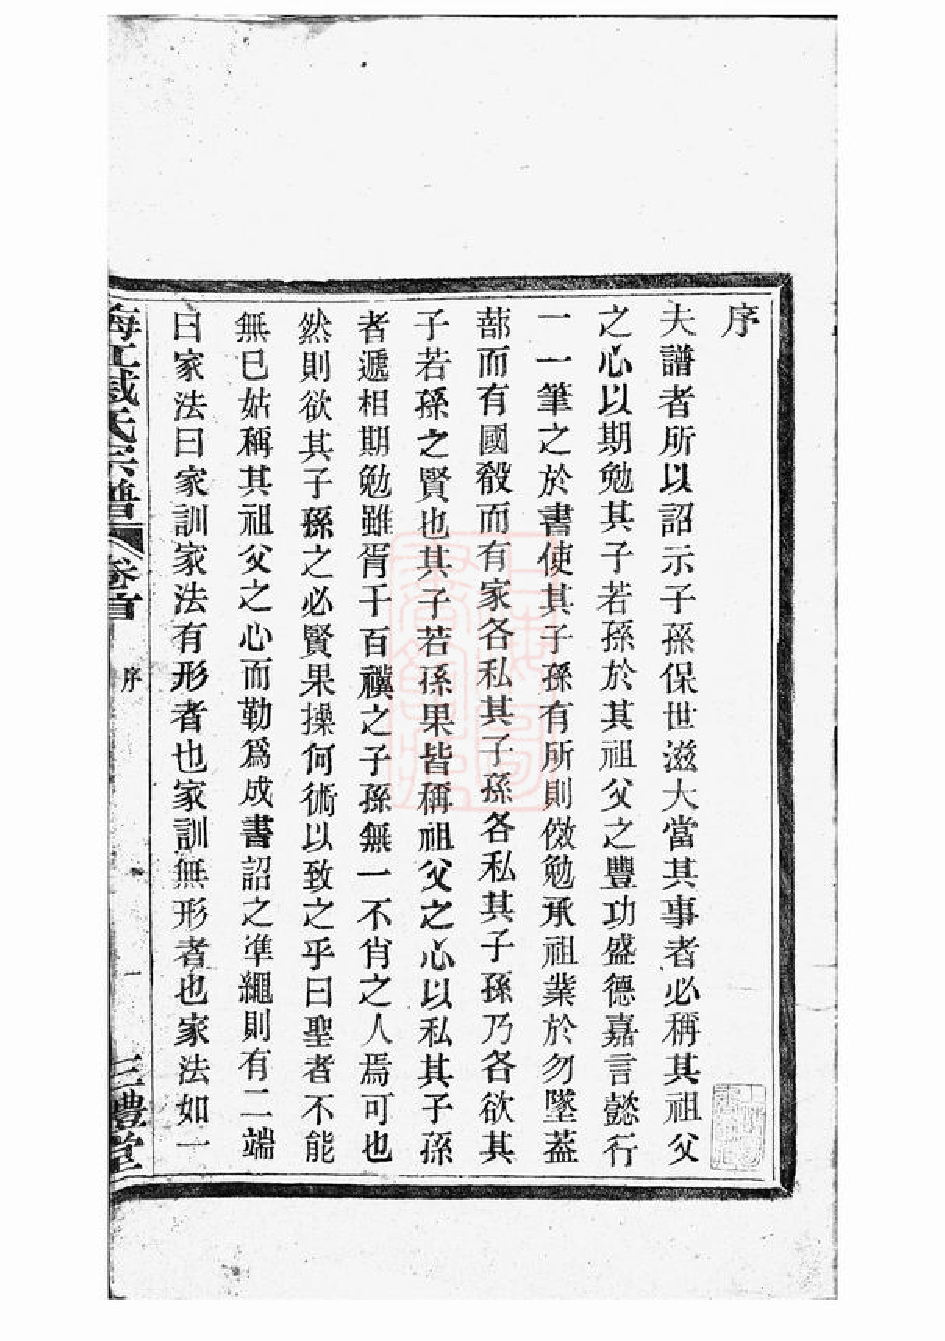 序
夫譜者所以詔示子孫保世滋大當其事者必稱其祖父
之心以期勉其子若孫於其祖父之豐功盛德嘉言懿行
一一筆之於書使其子孫有所則傚勉承祖業於勿墜蓋
蔀而有國殺而有家各私其子孫各私其子孫乃各欲其
子若孫之賢也其子若孫果皆稱祖父之心以私其子孫
者遞相期勉雖胥千百禩之子孫無一不肖之人焉可也
然則欲其子孫之必賢果操何術以致之乎曰聖者不能
無已姑稱其祖父之心而勒爲成書詔之準繩則有二端
曰家法曰家訓家法有形者也家訓無形者也家法如一
海工臧氏宗譜 卷首 序 一 三禮堂